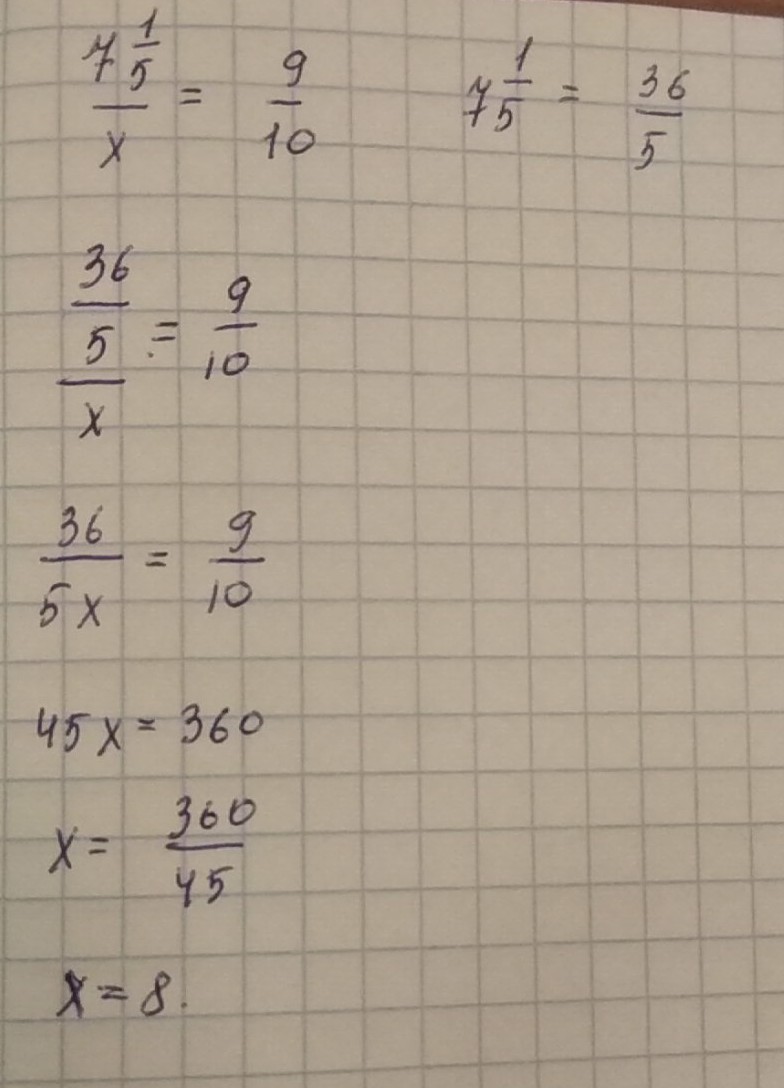 7 1/5 / x = 9/10
7 1/5 = 36/5
36/5 / x = 9/10
36/5x = 9/10
45x = 360
x = 360/45
x = 8.